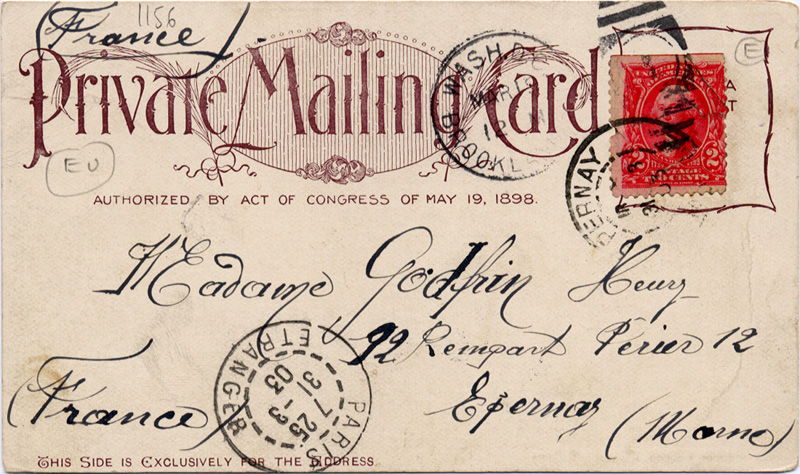 1156
(France)
Private Mailing Card
EU
E
AUTHORIZED BY ACT OF CONGRESS OF MAY 19, 1898.
WASH
MAR
12 M
BROOKL
UNITED STATES
OF AMERICA
2 2
POSTAGE
TWO CENTS
EPERNAY
Madame Godfrin Henry
92 Rempart Périer 12
Epernay (Marne)
(France)
PARIS
ETRANGER
7 25
31 - 3
03
THIS SIDE IS EXCLUSIVELY FOR THE ADDRESS